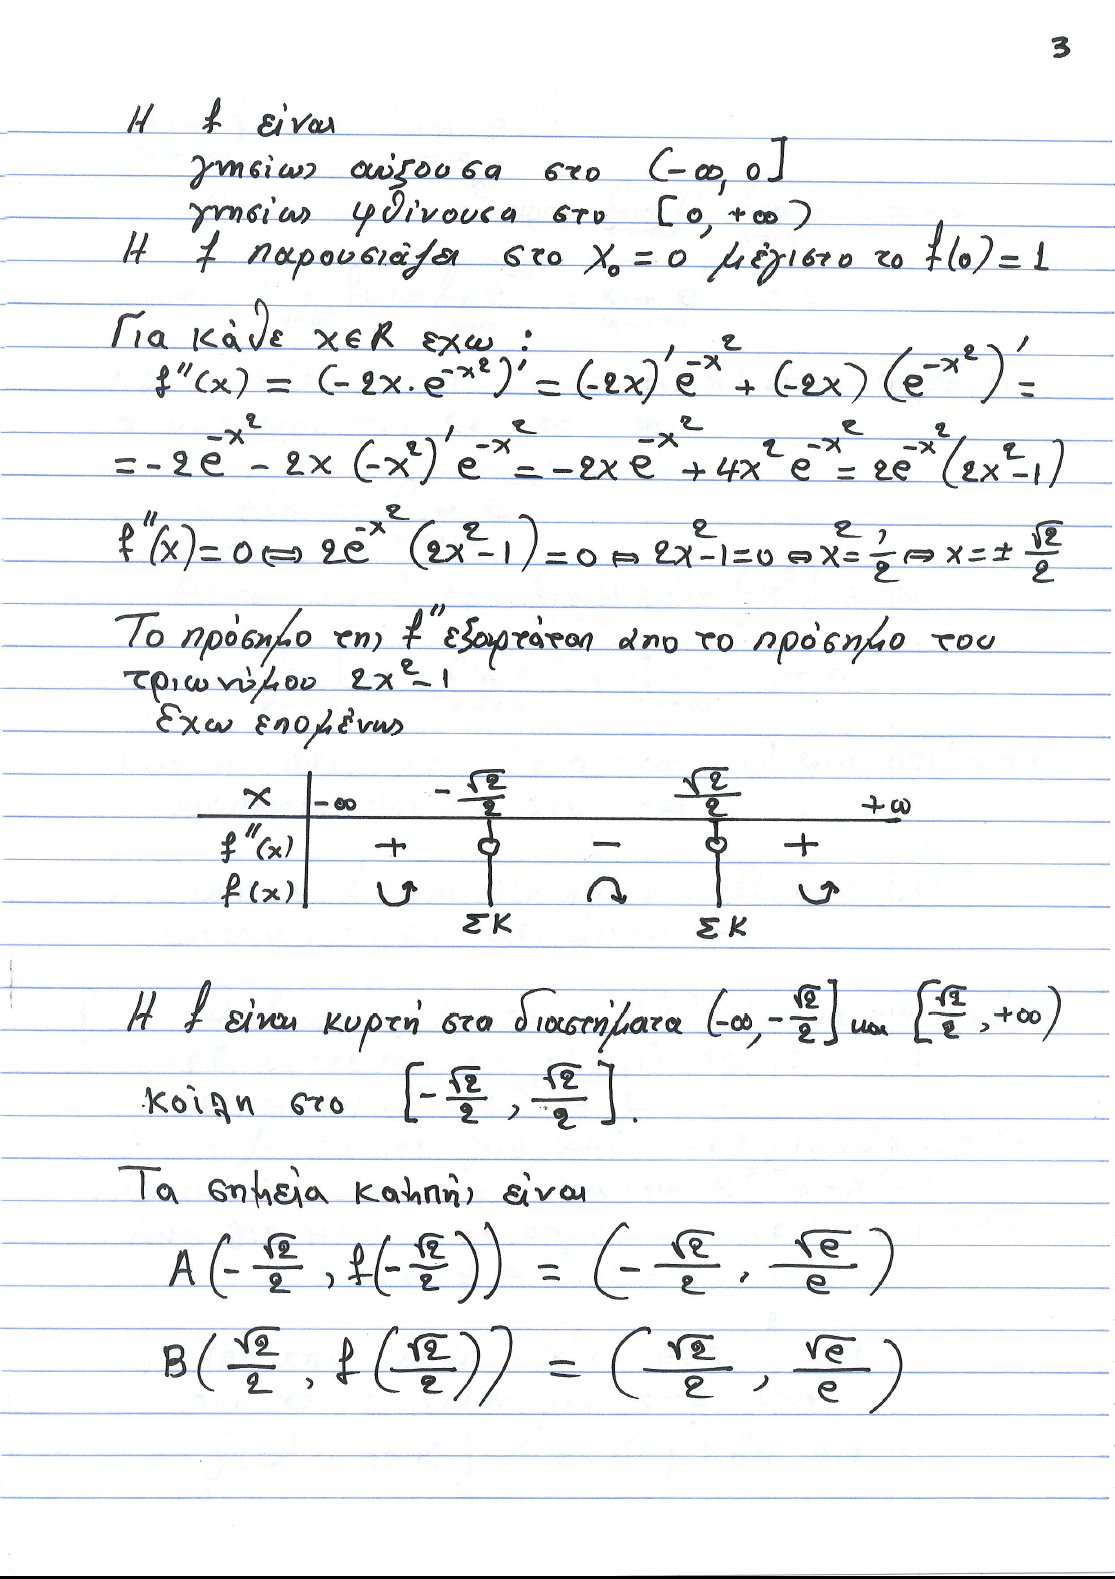 3
Η f είναι
γνησίως αύξουσα στο (-∞, 0]
γνησίως φθίνουσα στο [0, +∞)
Η f παρουσιάζει στο x₀ = 0 μέγιστο το f(0) = 1
Για κάθε x ∈ R εχω :
f''(x) = (-2x · e^{-x²})' = (-2x)' e^{-x²} + (-2x) (e^{-x²})' =
= -2e^{-x²} - 2x (-x²)' e^{-x²} = -2x e^{-x²} + 4x² e^{-x²} = 2e^{-x²} (2x²-1)
f''(x) = 0 ⇔ 2e^{-x²} (2x²-1) = 0 ⇔ 2x²-1 = 0 ⇔ x² = 1/2 ⇔ x = ± √2/2
Το πρόσημο της f'' εξαρτάται απο το πρόσημο του
τριωνύμου 2x²-1
Εχω επομένως
x -∞ -√2/2 √2/2 +∞
f''(x) + 0 - 0 +
f(x) ⤻ ↷ ⤻
ΣΚ ΣΚ
Η f είναι κυρτή στα διαστήματα (-∞, -√2/2] και [√2/2, +∞)
κοίλη στο [-√2/2, √2/2].
Τα σημεία καμπής είναι
A(-√2/2, f(-√2/2)) = (-√2/2, √e/e)
B(√2/2, f(√2/2)) = (√2/2, √e/e)